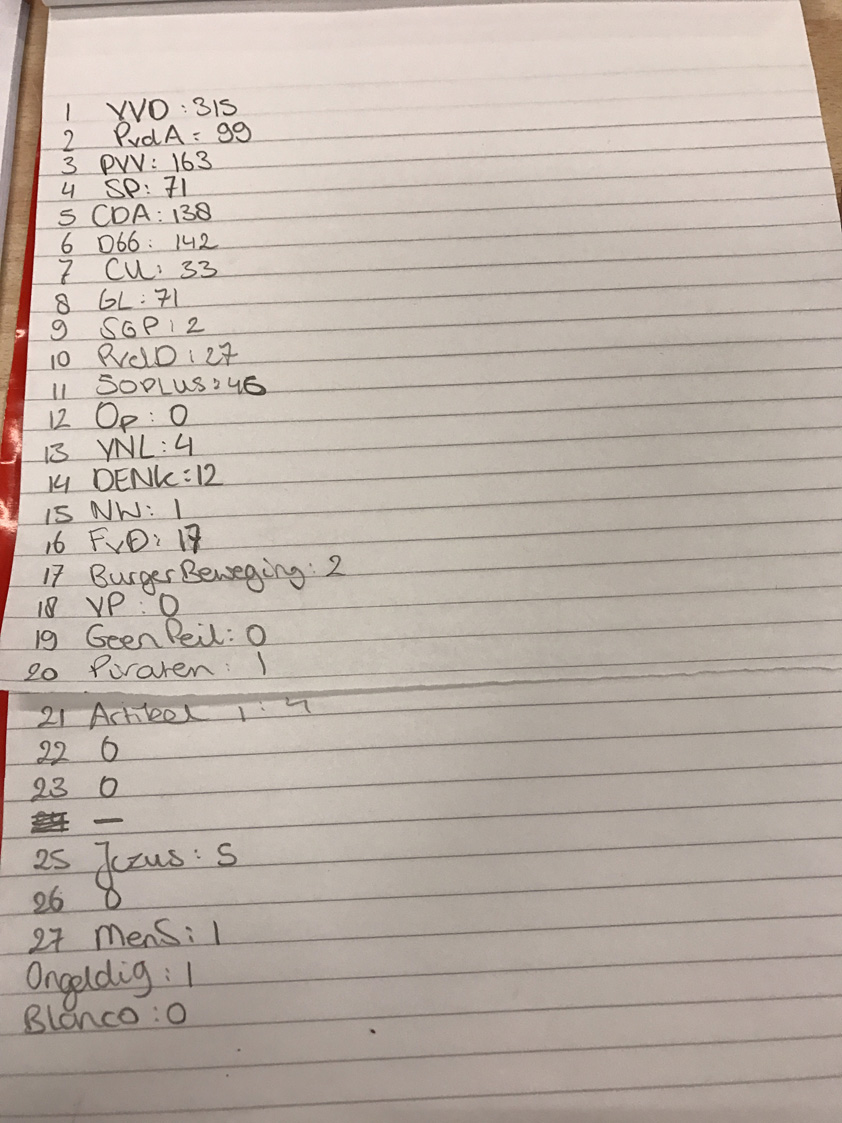 1 VVD : 315
2 PvdA : 99
3 PVV : 163
4 SP : 71
5 CDA : 138
6 D66 : 142
7 CU : 33
8 GL : 71
9 SGP : 2
10 PvdD : 27
11 50PLUS : 46
12 Op : 0
13 VNL : 4
14 DENK : 12
15 NW : 1
16 FvD : 17
17 BurgerBeweging : 2
18 VP : 0
19 GeenPeil : 0
20 Piraten : 1
21 Artikel 1 : 4
22 0
23 0
—
25 Jezus : 5
26 0
27 MenS : 1
Ongeldig : 1
Blanco : 0